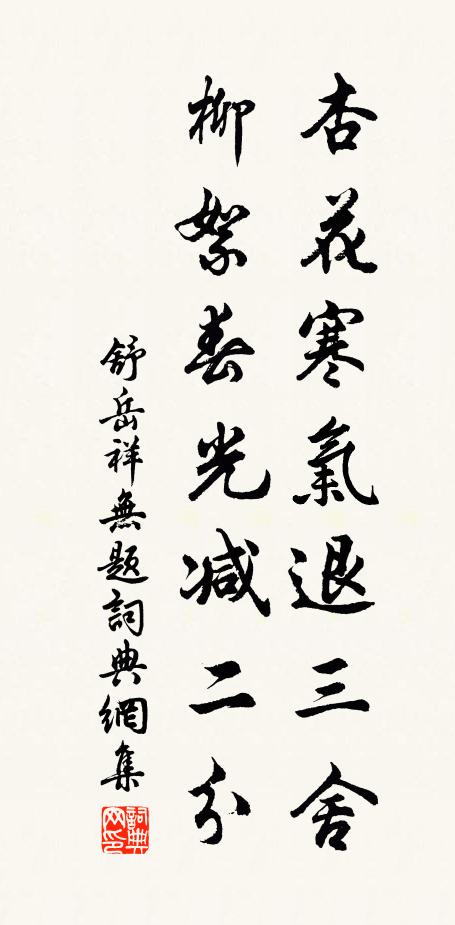 杏花寒氣退三舍
柳絮春光減二分
舒岳祥無題詞典網集
詞典网印